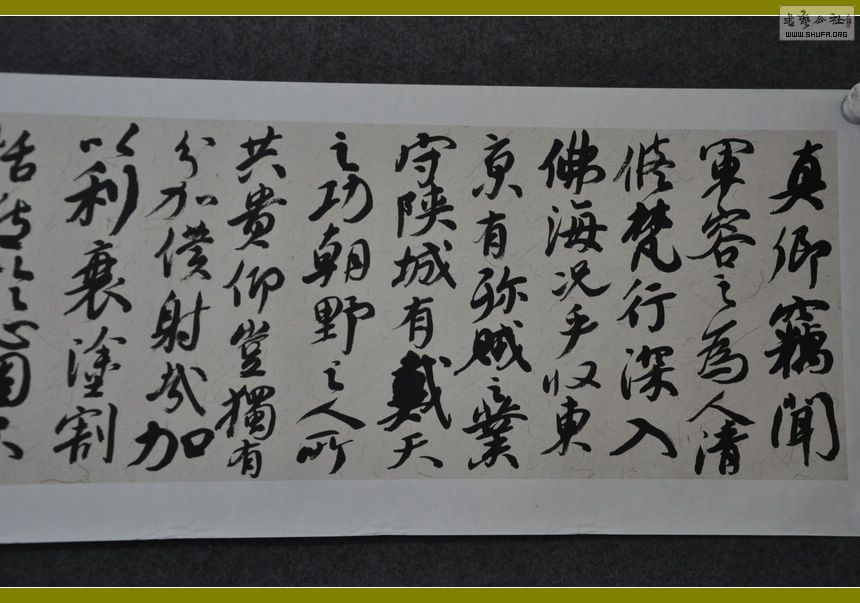 真卿竊聞
軍容之為人清
修梵行深入
佛海況乎收東
京有殄賊之業
守陝城有戴天
之功朝野之人所
共貴仰豈獨有
分加僕射哉加
以利衰塗割
恬然於心固不
書藝公社
WWW.SHUFA.ORG